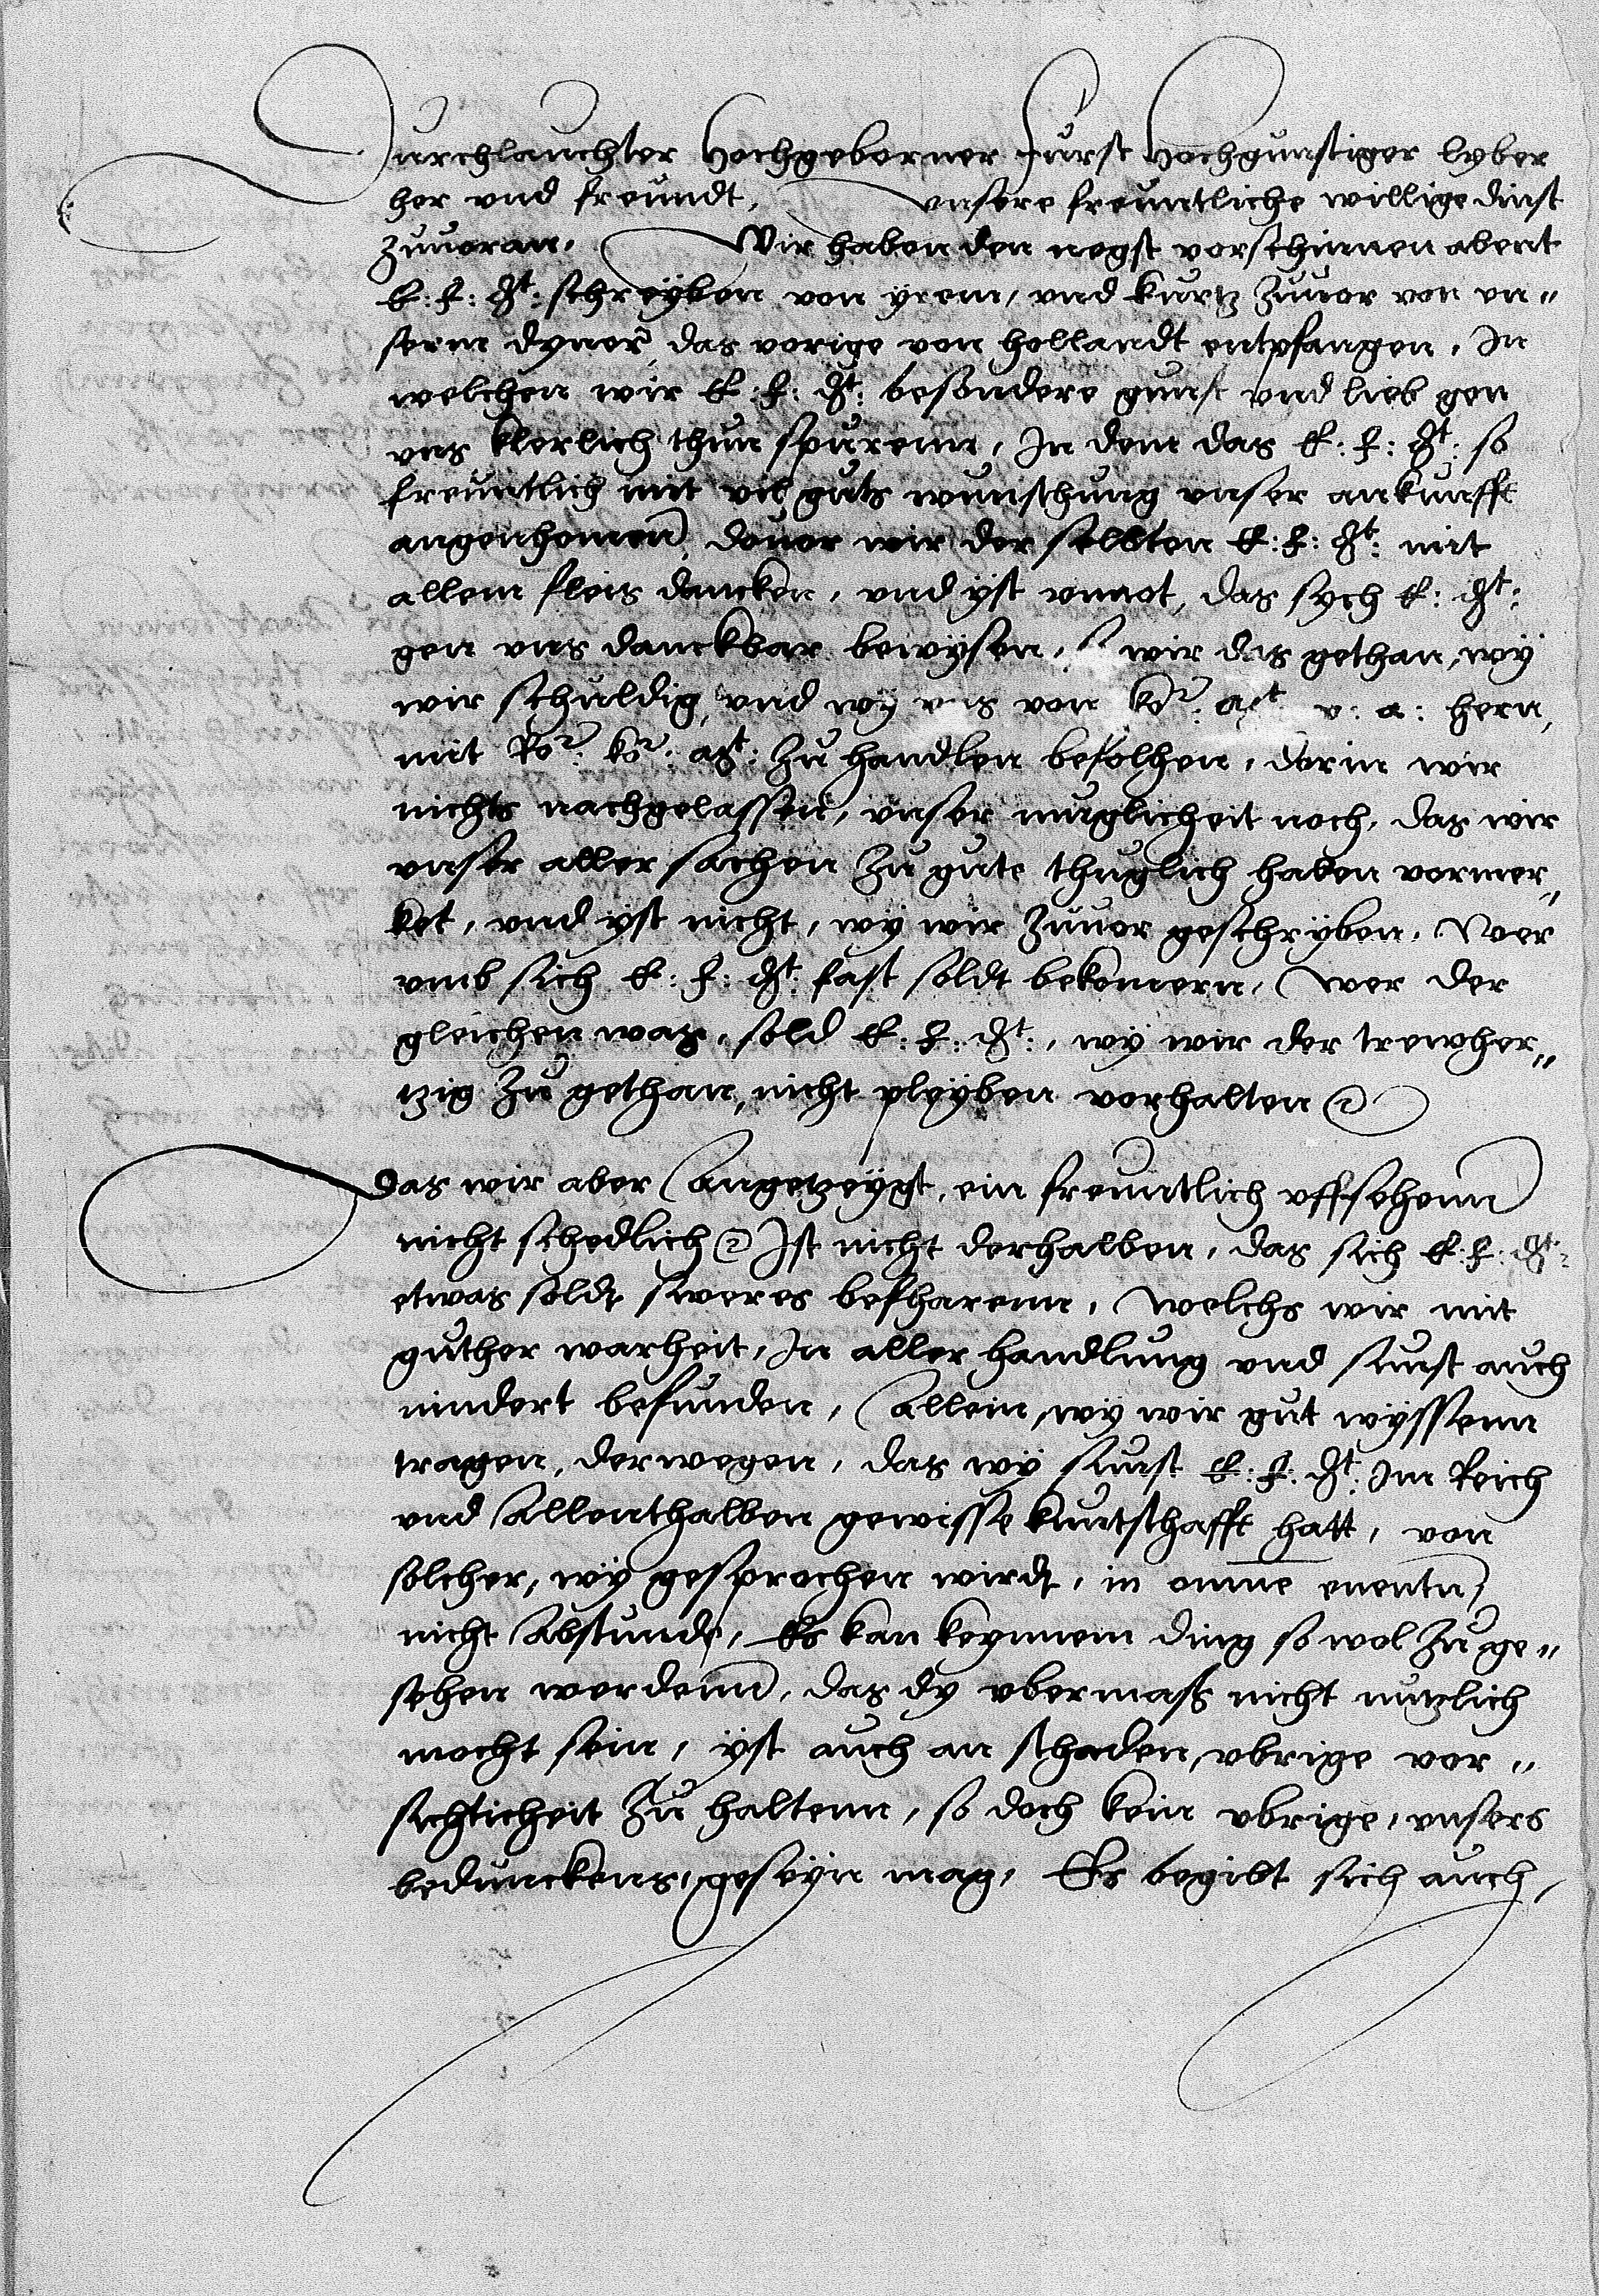 Durchlauchter Hochgeborner Furst Hochgunstiger lyber
her vnd freundt, vnsere freuntliche willige dinst
zuuoran. Wir haben den negst vorschinnen abent
E: F: Gt: schreÿben von ÿrem, vnd kurtz zuuor von vn„
serm dyner das vorige von hollandt entpfangen, In
welchen wir E: F: Gt: besondere gunst vnd lieb gen
vns klerlich thun spurenn, In dem das E: F: Gt: so
freuntlich mit vil guts wunschung vnser ankunfft
angenhomen, douor wir der selbten E: F: Gt: mit
allem fleis dancken, vnd ÿst vnnot, das sych E: Gt:
gen vns danckbar bewÿsen, wir das gethan, wÿ
wir schuldig, vnd wÿ vns von kor: Mt v: a: hern,
mit Ro: ko: Mt: zu handlen befolhen, dorin wir
nichts nachgelassen, vnser muglicheit noch, das wir
vnser aller sachen zu gute thuglich haben vormer„
ket, vnd ÿst nicht, wÿ wir zuuor geschryben, Wor
vmb sich E: F: Gt: fast soldt bekomern, wer der
gleichen was, sold E: F: Gt:, wÿ wir der trewher„
tzig zu gethan, nicht pleÿben vorhalten
Das wir aber Angetzeÿgt, ein freuntlich vffsehenn
nicht schedlich Ist nicht derhalben, das sich E: F: Gt:
etwas soldt sweres befharenn, welchs wir mit
guther warheit, In aller handlung vnd sunst auch
nindert befunden, Allein, wy wir gut wÿssenn
tragen, derwegen, das wÿ sunst E: F: Gt: Im Reich
vnd Allenthalben gewisse kuntschafft hatt, von
solcher, wÿ gesprochen wirdt, in omne euentu
nicht Abstunde, Es kan keynnem ding so wol zu ge„
sehen werdenn, das dy vbermass nicht nutzlich
mocht sein, ÿst auch an schaden, vbrige vor„
sichticheit zu haltenn, so doch kein vbrige, vnsers
beduncken​s, geseÿn mag, Es begibt sich auch,